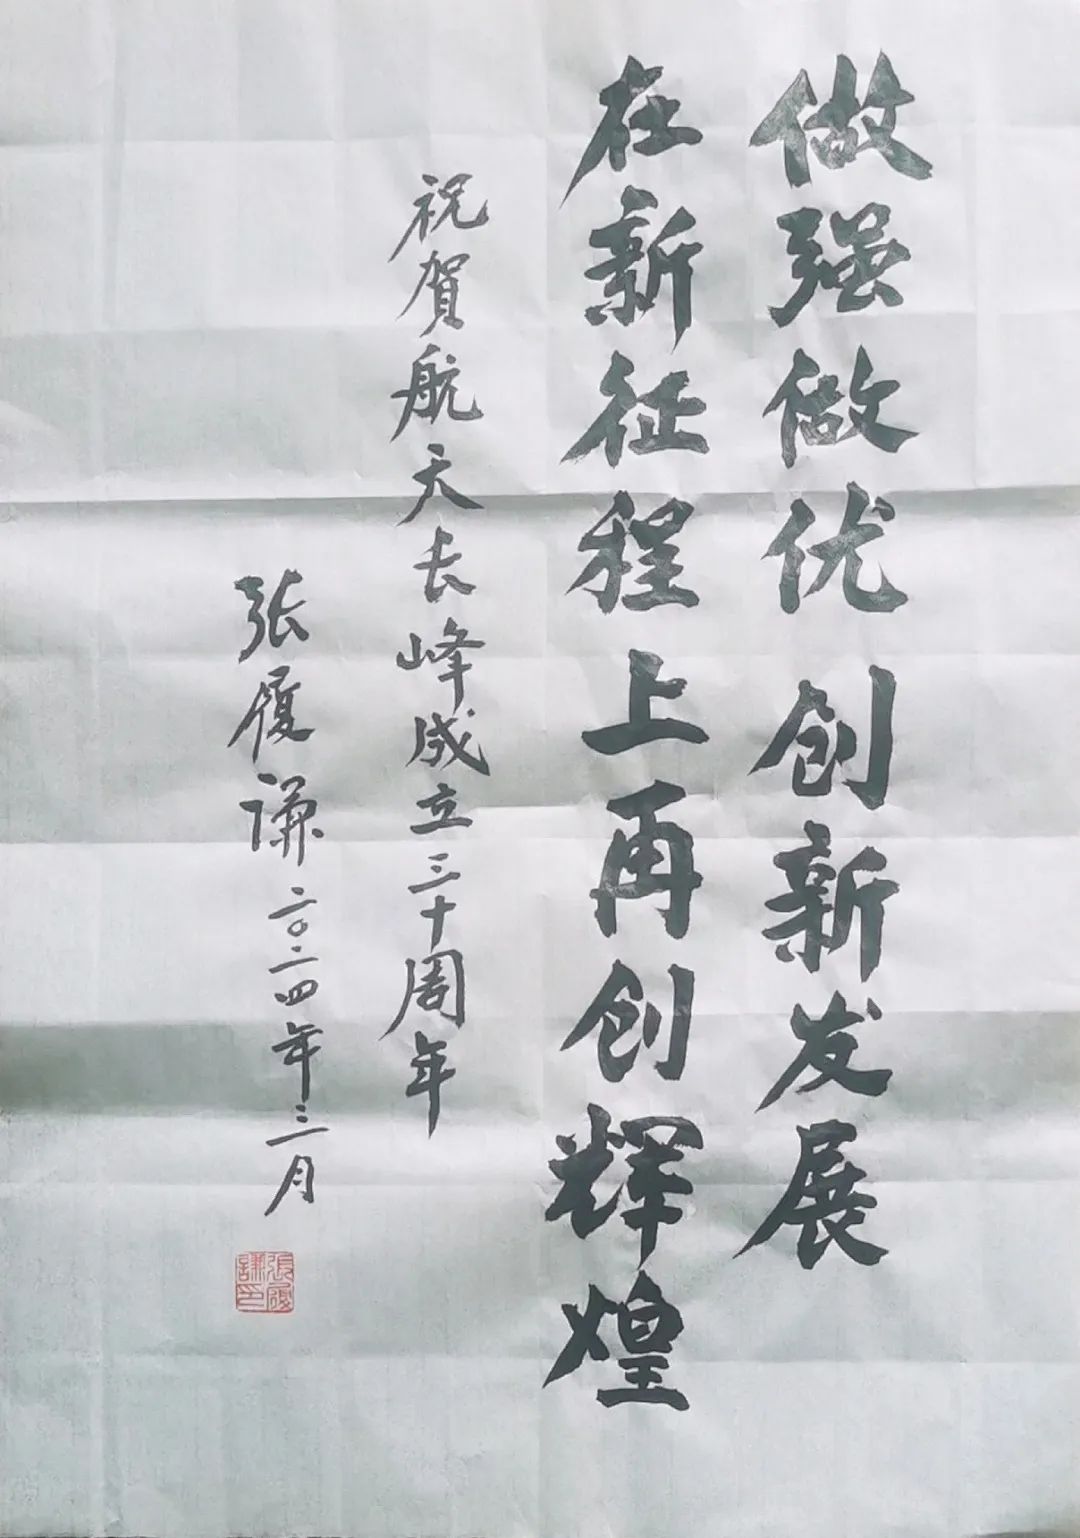 做强做优 创新发展
在新征程上再创辉煌
祝賀航天长峰成立三十周年
张履谦 二〇二四年三月
張履謙印